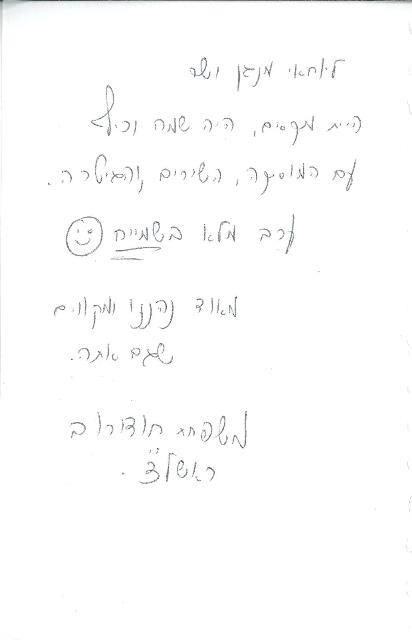 ליוחאי מנגן ושר
היית מקסים, היה שמח וכיף
עם המוסיקה, השירים, והגיטרה.
ערב מלא בשמייח
מאוד נהננו ומקווים
שגם אתה.
משפחת חודורוב
ראשל"צ.